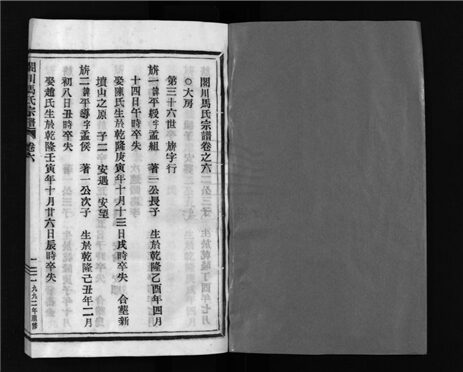 閣川馬氏宗譜卷之六
○大房
第三十六世 旂字行
旂一諱平毅字孟組 著一公長子 生於乾隆乙酉年四月
十四日午時卒失
娶陳氏生於乾隆庚寅年十月十三日戌時卒失 合塟新
墳山之原 子二 安遇 安望
旂二諱平導字孟侯 著一公次子 生於乾隆己丑年二月
初八日丑時卒失
娶趙氏生於乾隆壬寅年十月廿六日辰時卒失
閣川馬氏宗譜 卷六 一 一九九二年重修